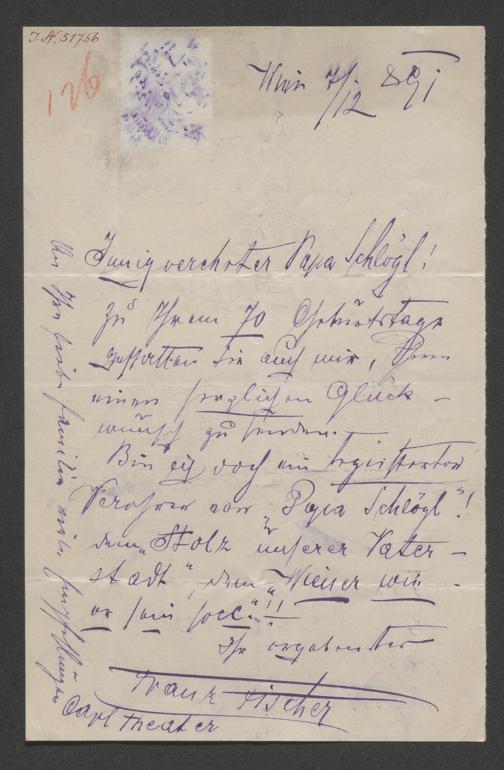 I. N. 51756
126
Wien 7/12 891
Innigverehrter Papa Schlögl!
Zu Ihrem 70 Geburtstage
gestatten Sie auch mir, Ihnen
einen herzlichen Glück-
wunsch zu senden.
Bin ich doch ein begeisterter
Verehrer von "Papa Schlögl"!
dem "Stolz unserer Vater-
stadt", dem "Wiener wie
er sein soll"!!
Ihr ergebenster
Franz Fischer
Carl Theater
An Ihre liebe Familie viele Empfehlungen